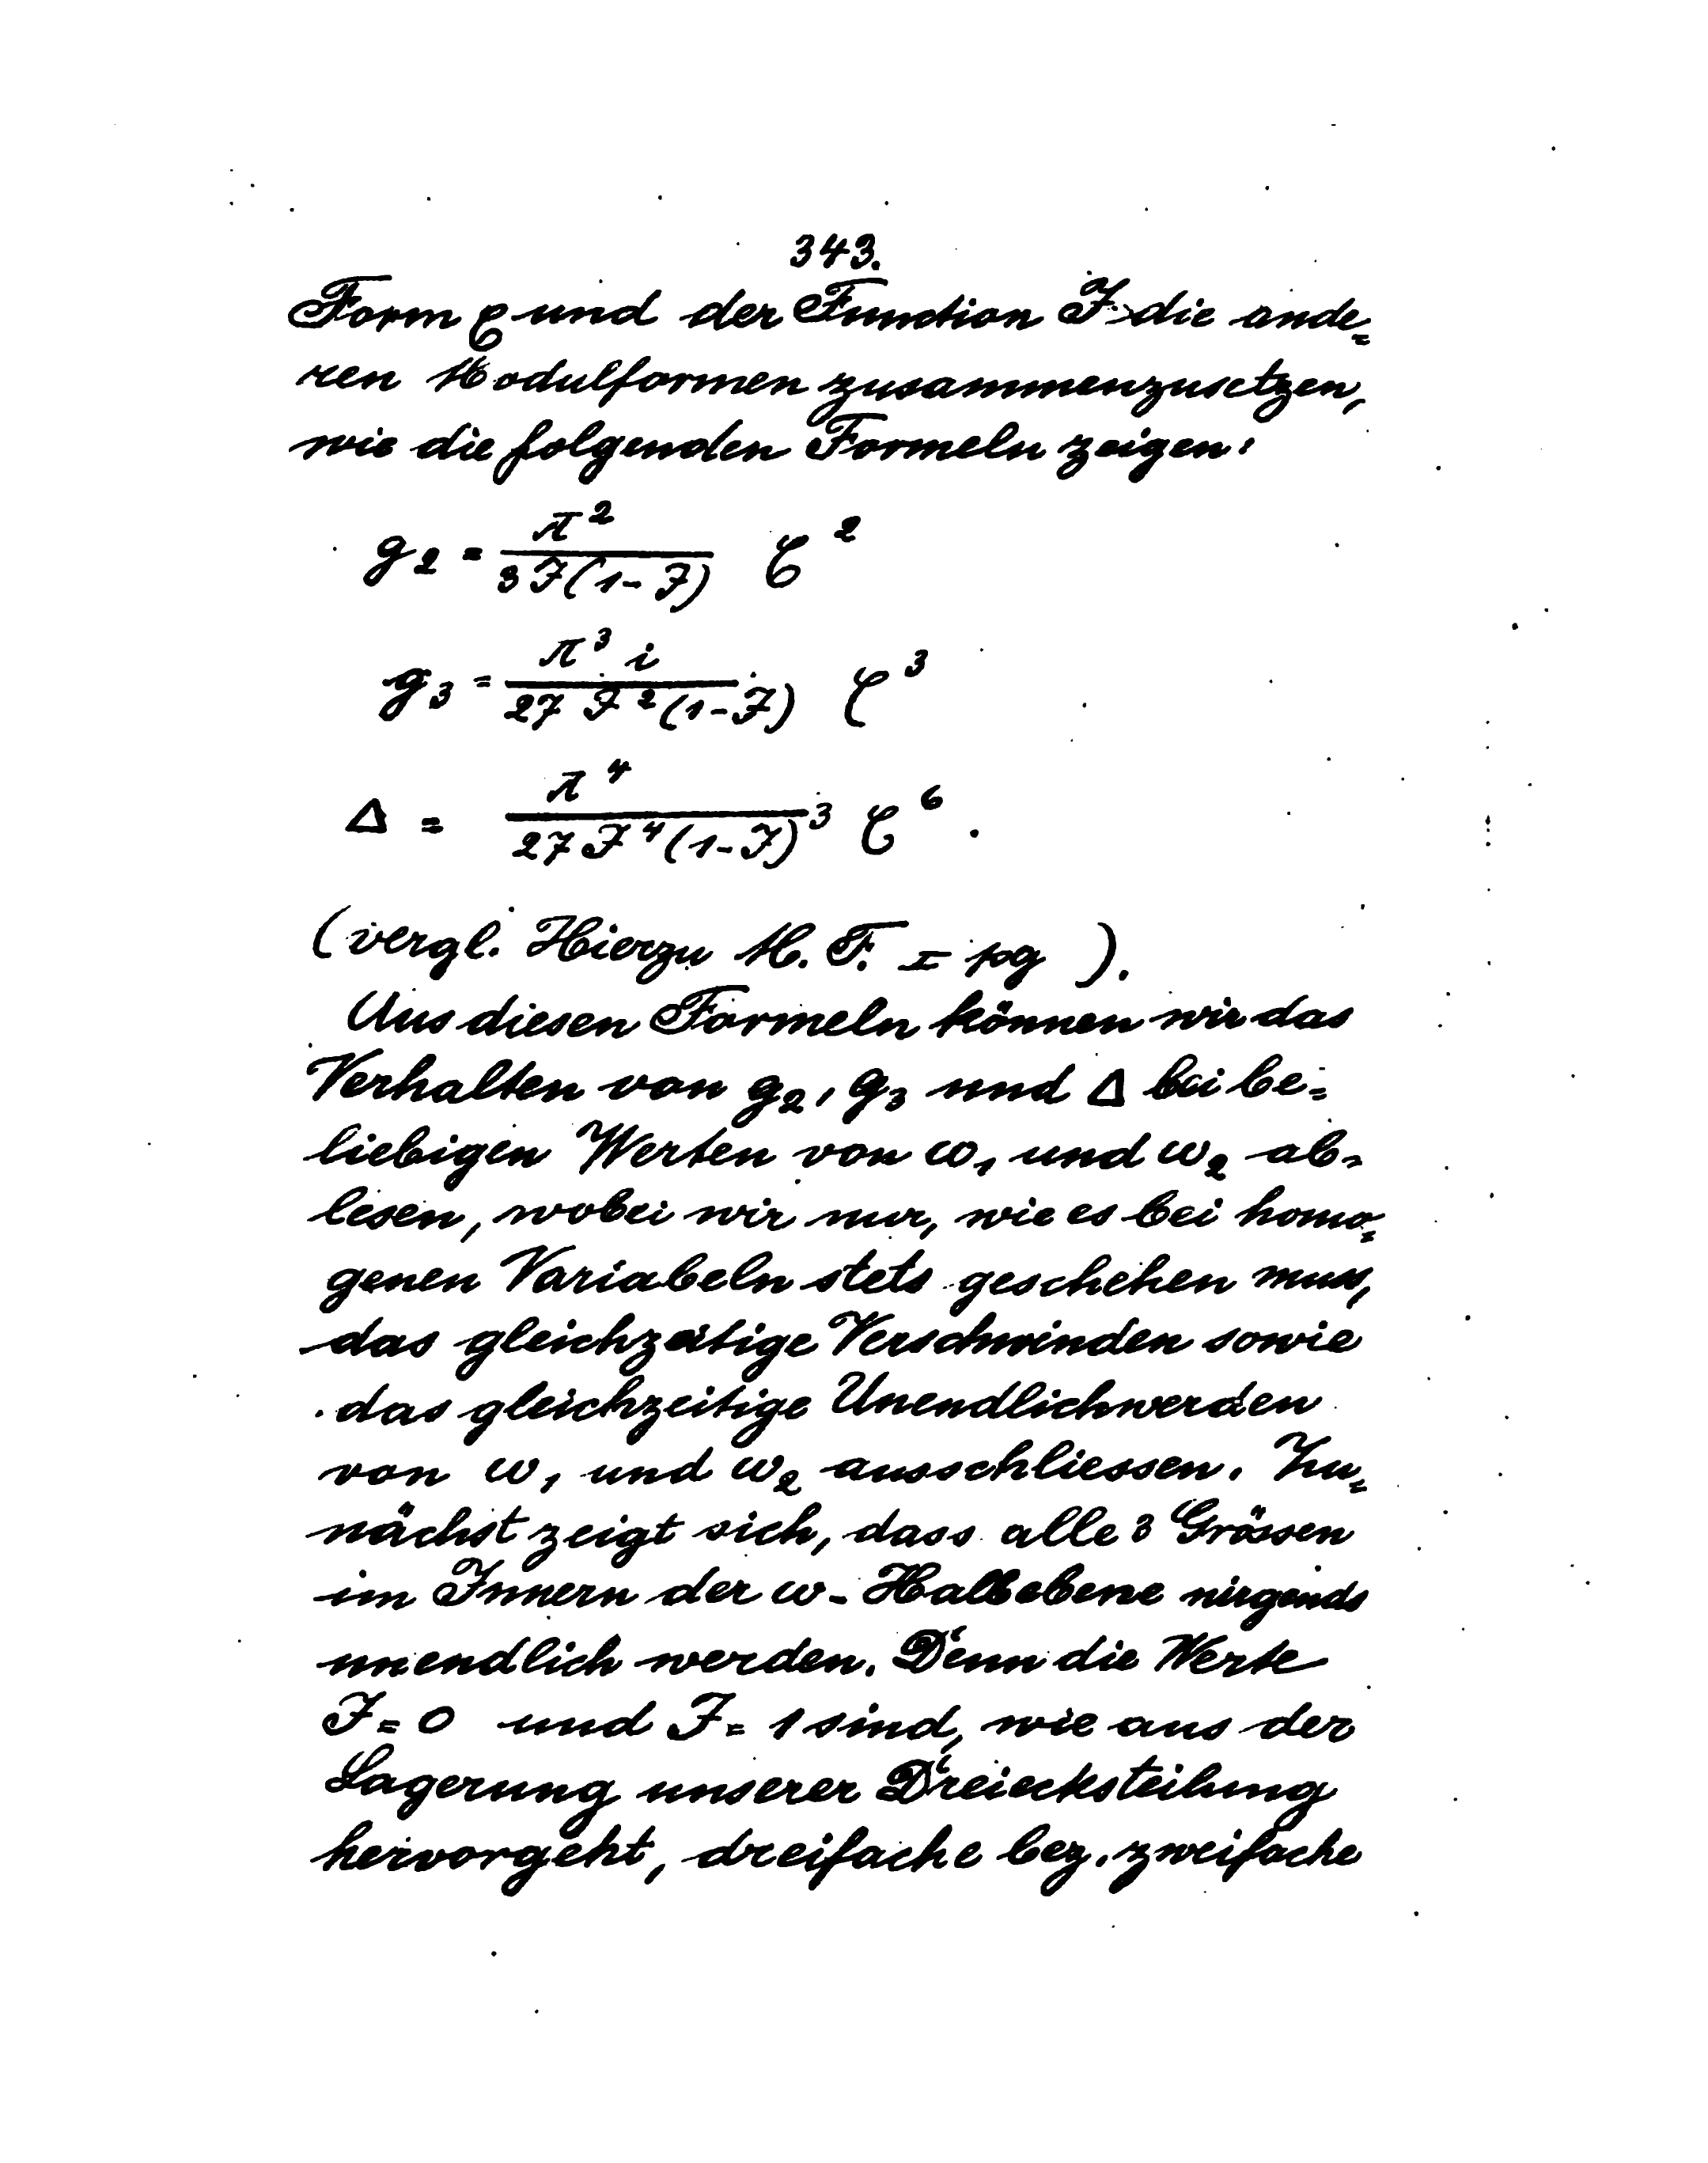 343.
Form ℭ und der Function J die ande=
ren Modulformen zusammenzusetzen,
wie die folgenden Formeln zeigen:
g₂ = π² / 3J(1-J) ℭ²
g₃ = π³ i / 27 J²(1-J) ℭ³
Δ = π⁴ / 27 J⁴(1-J)³ ℭ⁶.
(vergl. Hierzu M. F. I pg ).
Aus diesen Formeln können wir das
Verhalten von g₂, g₃ und Δ bei be=
liebigen Werten von ω₁ und ω₂ ab=
lesen, wobei wir nur, wie es bei homo=
genen Variabeln stets geschehen muss,
das gleichzeitige Verschwinden sowie
das gleichzeitige Unendlichwerden
von ω₁ und ω₂ ausschliessen. Zu=
nächst zeigt sich, dass alle 3 Grössen
im Innern der ω-Halbebene nirgends
unendlich werden. Denn die Werte
J = 0 und J = 1 sind, wie aus der
Lagerung unserer Dreiecksteilung
hervorgeht, dreifache bez. zweifache